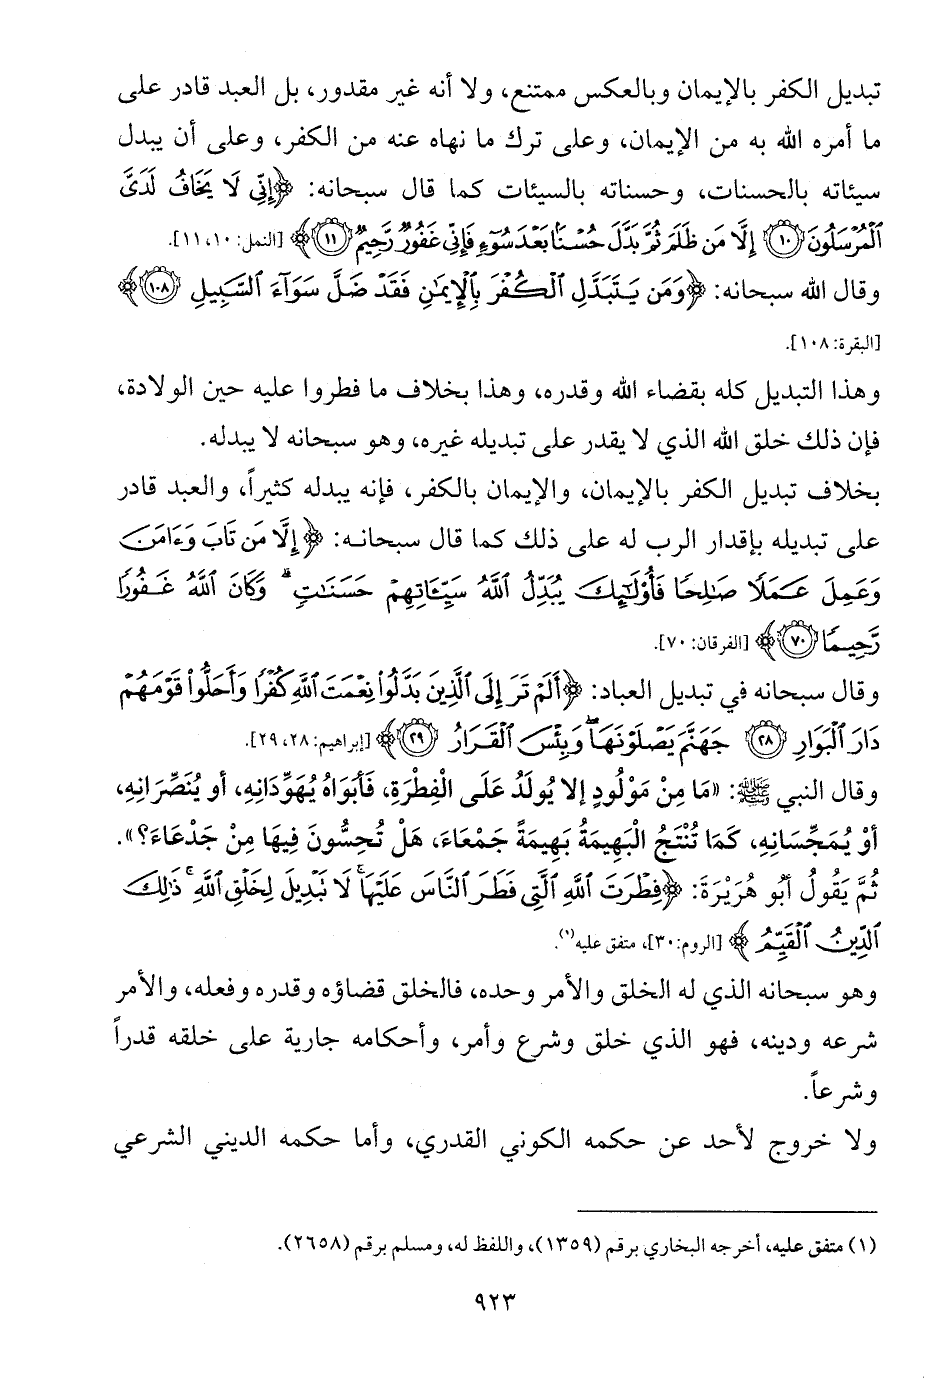 تبديل الكفر بالإيمان وبالعكس ممتنع، ولا أنه غير مقدور، بل العبد قادر على
ما أمره الله به من الإيمان، وعلى ترك ما نهاه عنه من الكفر، وعلى أن يبدل
سيئاته بالحسنات، وحسناته بالسيئات كما قال سبحانه: ﴿إِنِّي لَا يَخَافُ لَدَيَّ
ٱلْمُرْسَلُونَ ۝١٠ إِلَّا مَن ظَلَمَ ثُمَّ بَدَّلَ حُسْنًۢا بَعْدَ سُوٓءٍ فَإِنِّي غَفُورٌ رَّحِيمٌ ۝١١﴾ [النمل: ١٠، ١١].
وقال الله سبحانه: ﴿وَمَن يَتَبَدَّلِ ٱلْكُفْرَ بِٱلْإِيمَٰنِ فَقَدْ ضَلَّ سَوَآءَ ٱلسَّبِيلِ ۝١٠٨﴾
[البقرة: ١٠٨].
وهذا التبديل كله بقضاء الله وقدره، وهذا بخلاف ما فطروا عليه حين الولادة،
فإن ذلك خلق الله الذي لا يقدر على تبديله غيره، وهو سبحانه لا يبدله.
بخلاف تبديل الكفر بالإيمان، والإيمان بالكفر، فإنه يبدله كثيراً، والعبد قادر
على تبديله بإقدار الرب له على ذلك كما قال سبحانه: ﴿إِلَّا مَن تَابَ وَءَامَنَ
وَعَمِلَ عَمَلًا صَٰلِحًا فَأُوْلَٰٓئِكَ يُبَدِّلُ ٱللَّهُ سَيِّـَٔاتِهِمْ حَسَنَٰتٍۗ وَكَانَ ٱللَّهُ غَفُورًا
رَّحِيمًا ۝٧٠﴾ [الفرقان: ٧٠].
وقال سبحانه في تبديل العباد: ﴿أَلَمْ تَرَ إِلَى ٱلَّذِينَ بَدَّلُواْ نِعْمَتَ ٱللَّهِ كُفْرًا وَأَحَلُّواْ قَوْمَهُمْ
دَارَ ٱلْبَوَارِ ۝٢٨ جَهَنَّمَ يَصْلَوْنَهَاۖ وَبِئْسَ ٱلْقَرَارُ ۝٢٩﴾ [إبراهيم: ٢٨، ٢٩].
وقال النبي ﷺ: «مَا مِنْ مَوْلُودٍ إلا يُولَدُ عَلَى الْفِطْرَةِ، فَأَبَوَاهُ يُهَوِّدَانِهِ، أو يُنَصِّرَانِهِ،
أوْ يُمَجِّسَانِهِ، كَمَا تُنْتَجُ الْبَهِيمَةُ بَهِيمَةً جَمْعَاءَ، هَلْ تُحِسُّونَ فِيهَا مِنْ جَدْعَاءَ؟».
ثُمَّ يَقُولُ أبُو هُرَيْرَةَ: ﴿فِطْرَتَ ٱللَّهِ ٱلَّتِي فَطَرَ ٱلنَّاسَ عَلَيْهَاۚ لَا تَبْدِيلَ لِخَلْقِ ٱللَّهِۚ ذَٰلِكَ
ٱلدِّينُ ٱلْقَيِّمُ﴾ [الروم: ٣٠]، متفق عليه(١).
وهو سبحانه الذي له الخلق والأمر وحده، فالخلق قضاؤه وقدره وفعله، والأمر
شرعه ودينه، فهو الذي خلق وشرع وأمر، وأحكامه جارية على خلقه قدراً
وشرعاً.
ولا خروج لأحد عن حكمه الكوني القدري، وأما حكمه الديني الشرعي
(١) متفق عليه، أخرجه البخاري برقم (١٣٥٩)، واللفظ له، ومسلم برقم (٢٦٥٨).
٩٢٣